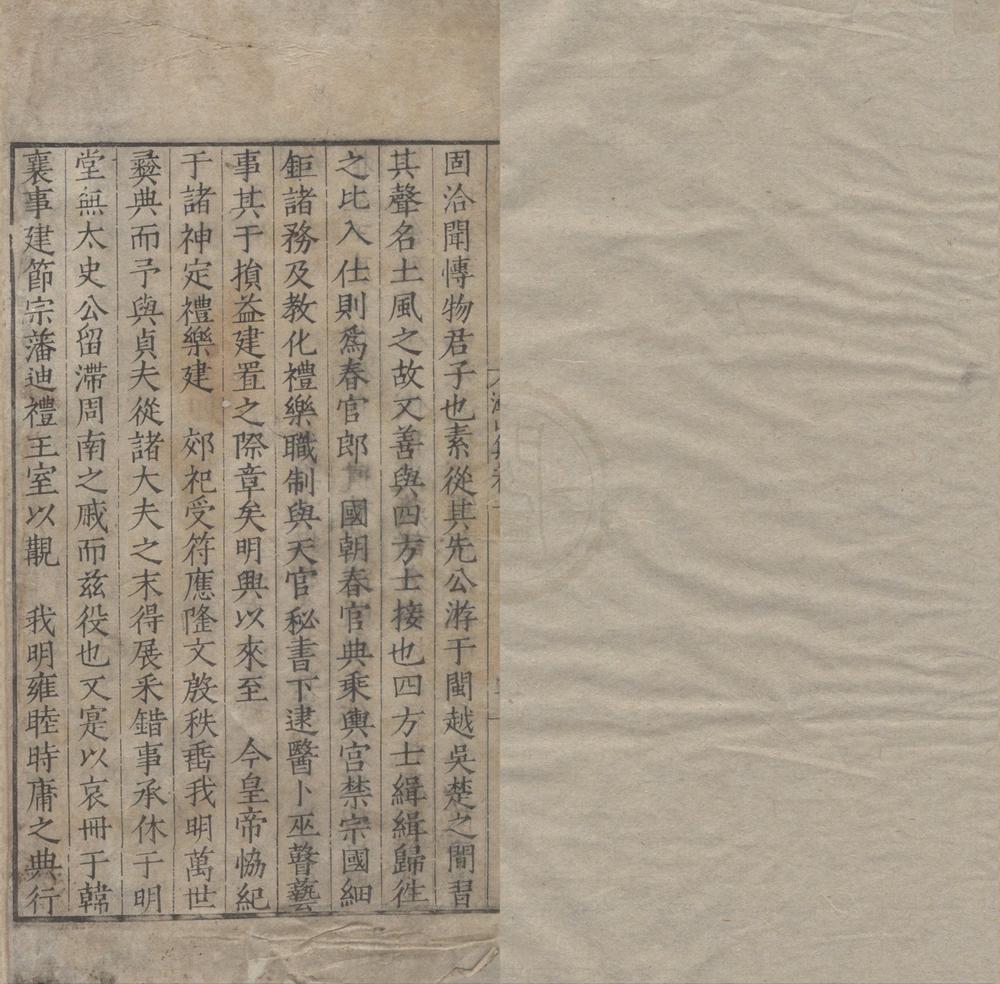 固洽聞慱物君子也素從其先公游于閩越吳楚之間習
其聲名土風之故又善與四方士接也四方士緝緝歸徃
之比入仕則爲春官郎　國朝春官典乘輿宫禁宗國細
鉅諸務及教化禮樂職制與天官秘書下逮醫卜巫瞽藝
事其于損益建置之際章矣明興以來至　今皇帝恊紀
于諸神定禮樂建　郊祀受符應隆文殷秩垂我明萬世
彜典而予與貞夫從諸大夫之末得展采錯事承休于明
堂無太史公留滯周南之戚而兹役也又寔以哀冊于韓
襄事建節宗藩迪禮王室以覩　我明雍睦時庸之典行